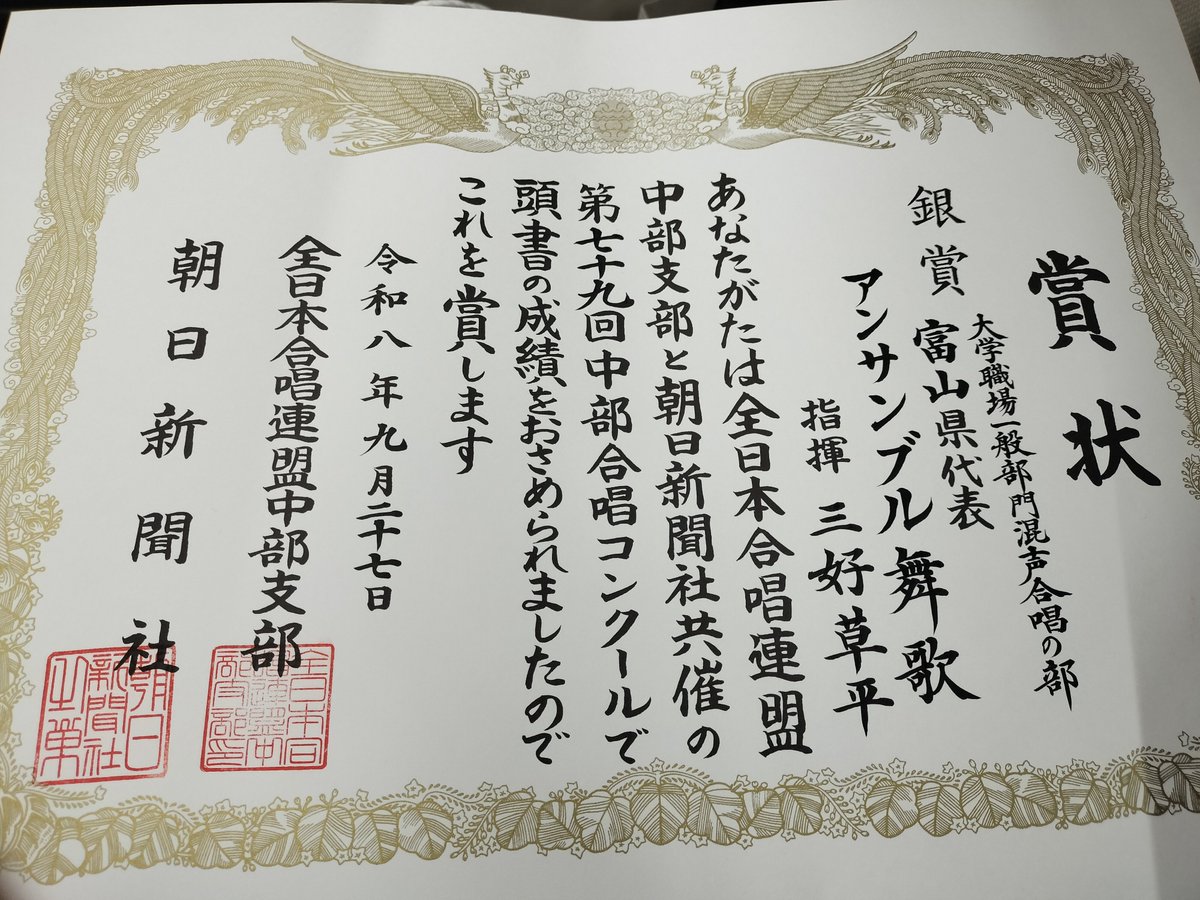 賞状
大学職場一般部門混声合唱の部
銀賞 富山県代表
アンサンブル舞歌
指揮 三好草平
あなたがたは全日本合唱連盟
中部支部と朝日新聞社共催の
第七十九回中部合唱コンクールで
頭書の成績をおさめられましたので
これを賞します
令和八年九月二十七日
全日本合唱連盟中部支部
朝日新聞社